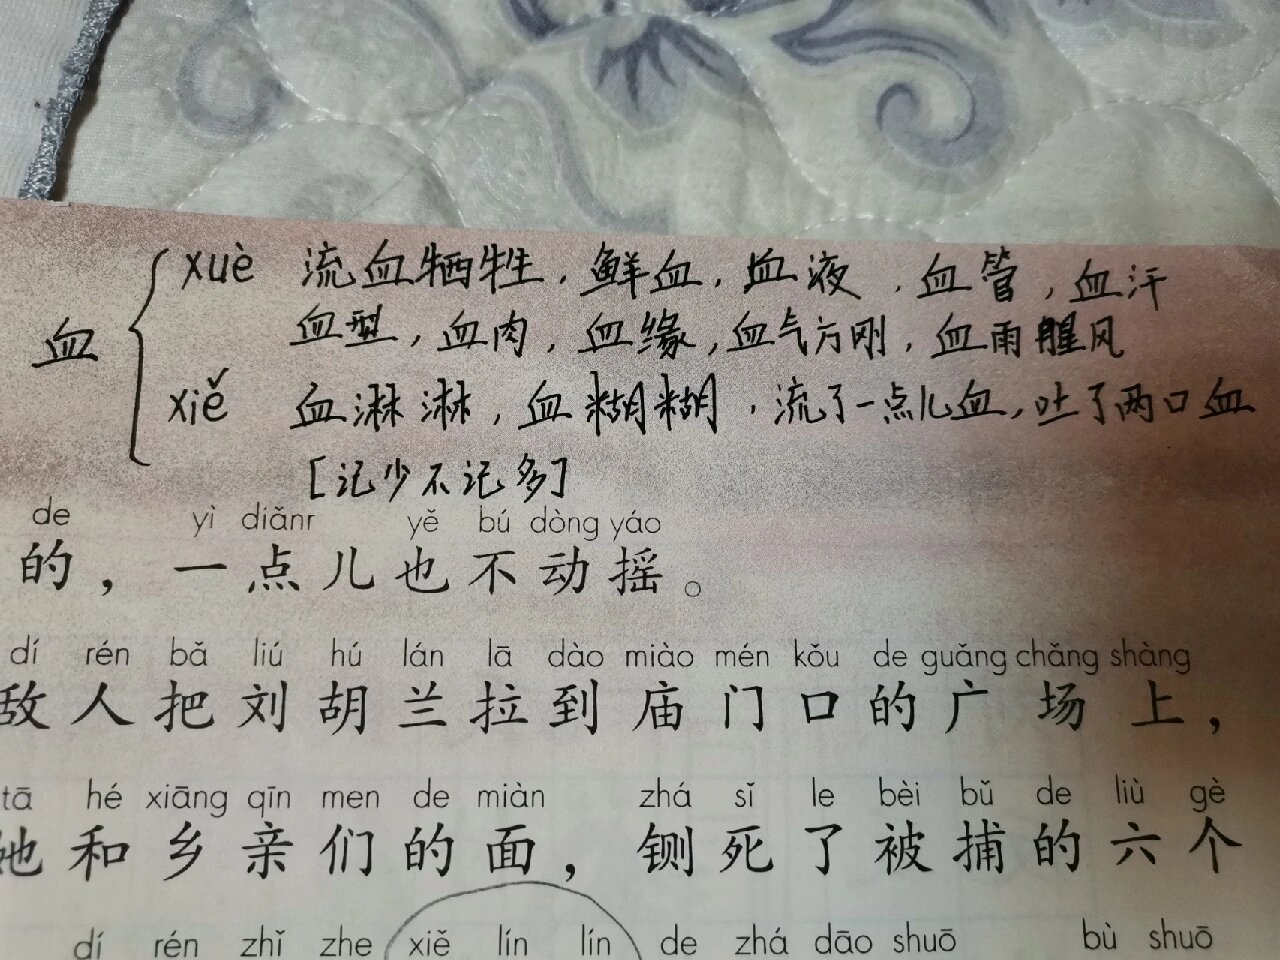 血 xuè 流血牺牲，鲜血，血液，血管，血汗
血型，血肉，血缘，血气方刚，血雨腥风
xiě 血淋淋，血糊糊，流了一点儿血，吐了两口血
[记少不记多]
de yì diǎnr yě bú dòng yáo
的，一点儿也不动摇。
dí rén bǎ liú hú lán lā dào miào mén kǒu de guǎng chǎng shàng
敌人把刘胡兰拉到庙门口的广场上，
tā hé xiāng qīn men de miàn zhá sǐ le bèi bǔ de liù gè
她和乡亲们的面，铡死了被捕的六个
dí rén zhǐ zhe xiě lín lín de zhá dāo shuō bù shuō